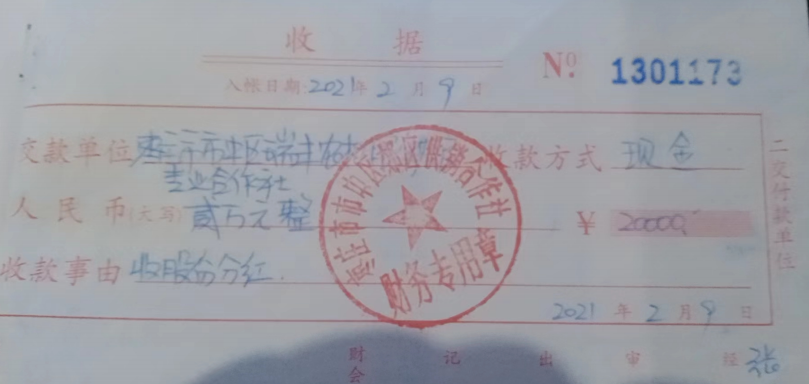 收 据
№ 1301173
入帐日期:2021年2月9日
交款单位 枣庄市市中区瑞丰农 收款方式 现金
专业合作社
人民币(大写) 贰万元整 ¥ 20000
收款事由 收股份分红.
枣庄市市中区 区供销合作社
财务专用章
2021年2月9日
二交付款单位
财会 记 出 审 经 张